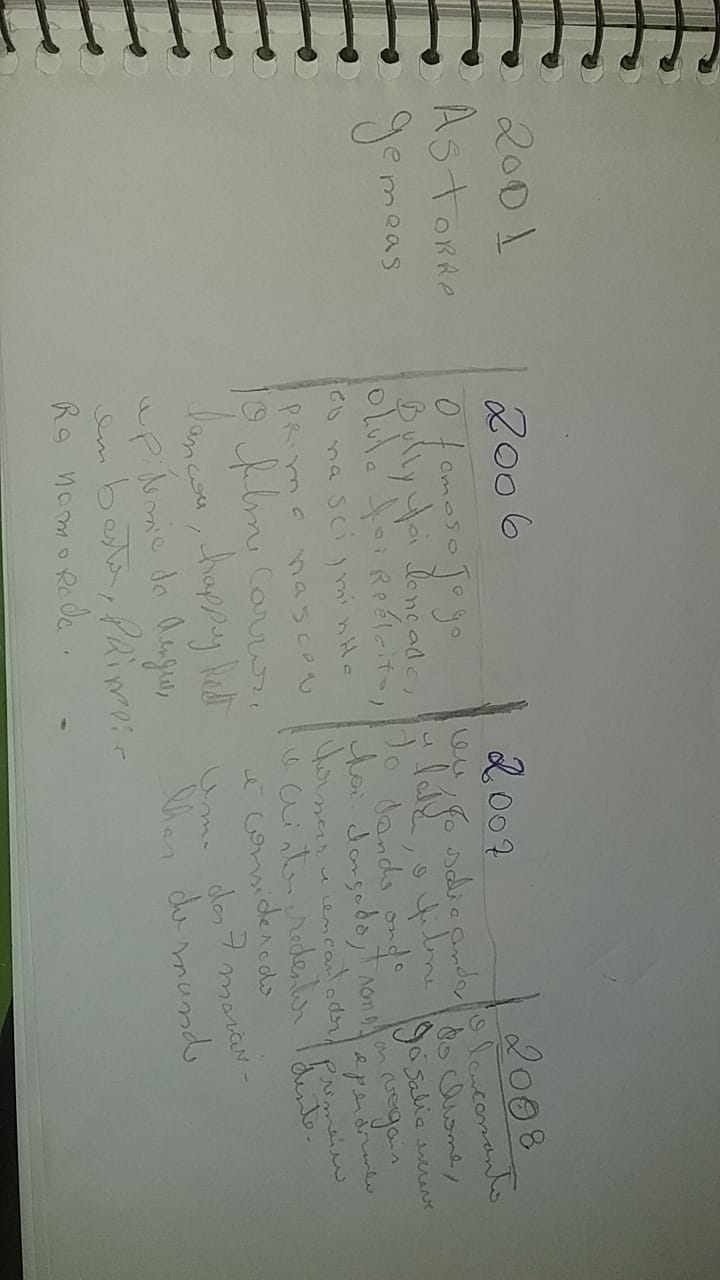 2001
AS TORRE
gemeas
2006
O famoso Jogo
Bully foi lancado,
o lula foi Reéleito,
eu nasci, minha
prima nasceu
O filme carros,
lancou, happy feet
epidemia da dengue,
em bater, primeir-
Ra namorada.
2007
eu, já sabia andar,
e falar, o filme
Tá dando onda
foi lançado,
e encantada,
o cristo redentor
é considerado
uma das 7 maravi-
lhas do mundo
2008
o lancamento
do chrome,
já sabia escrever
as vogais
e perdi meu
primeiro
dente.